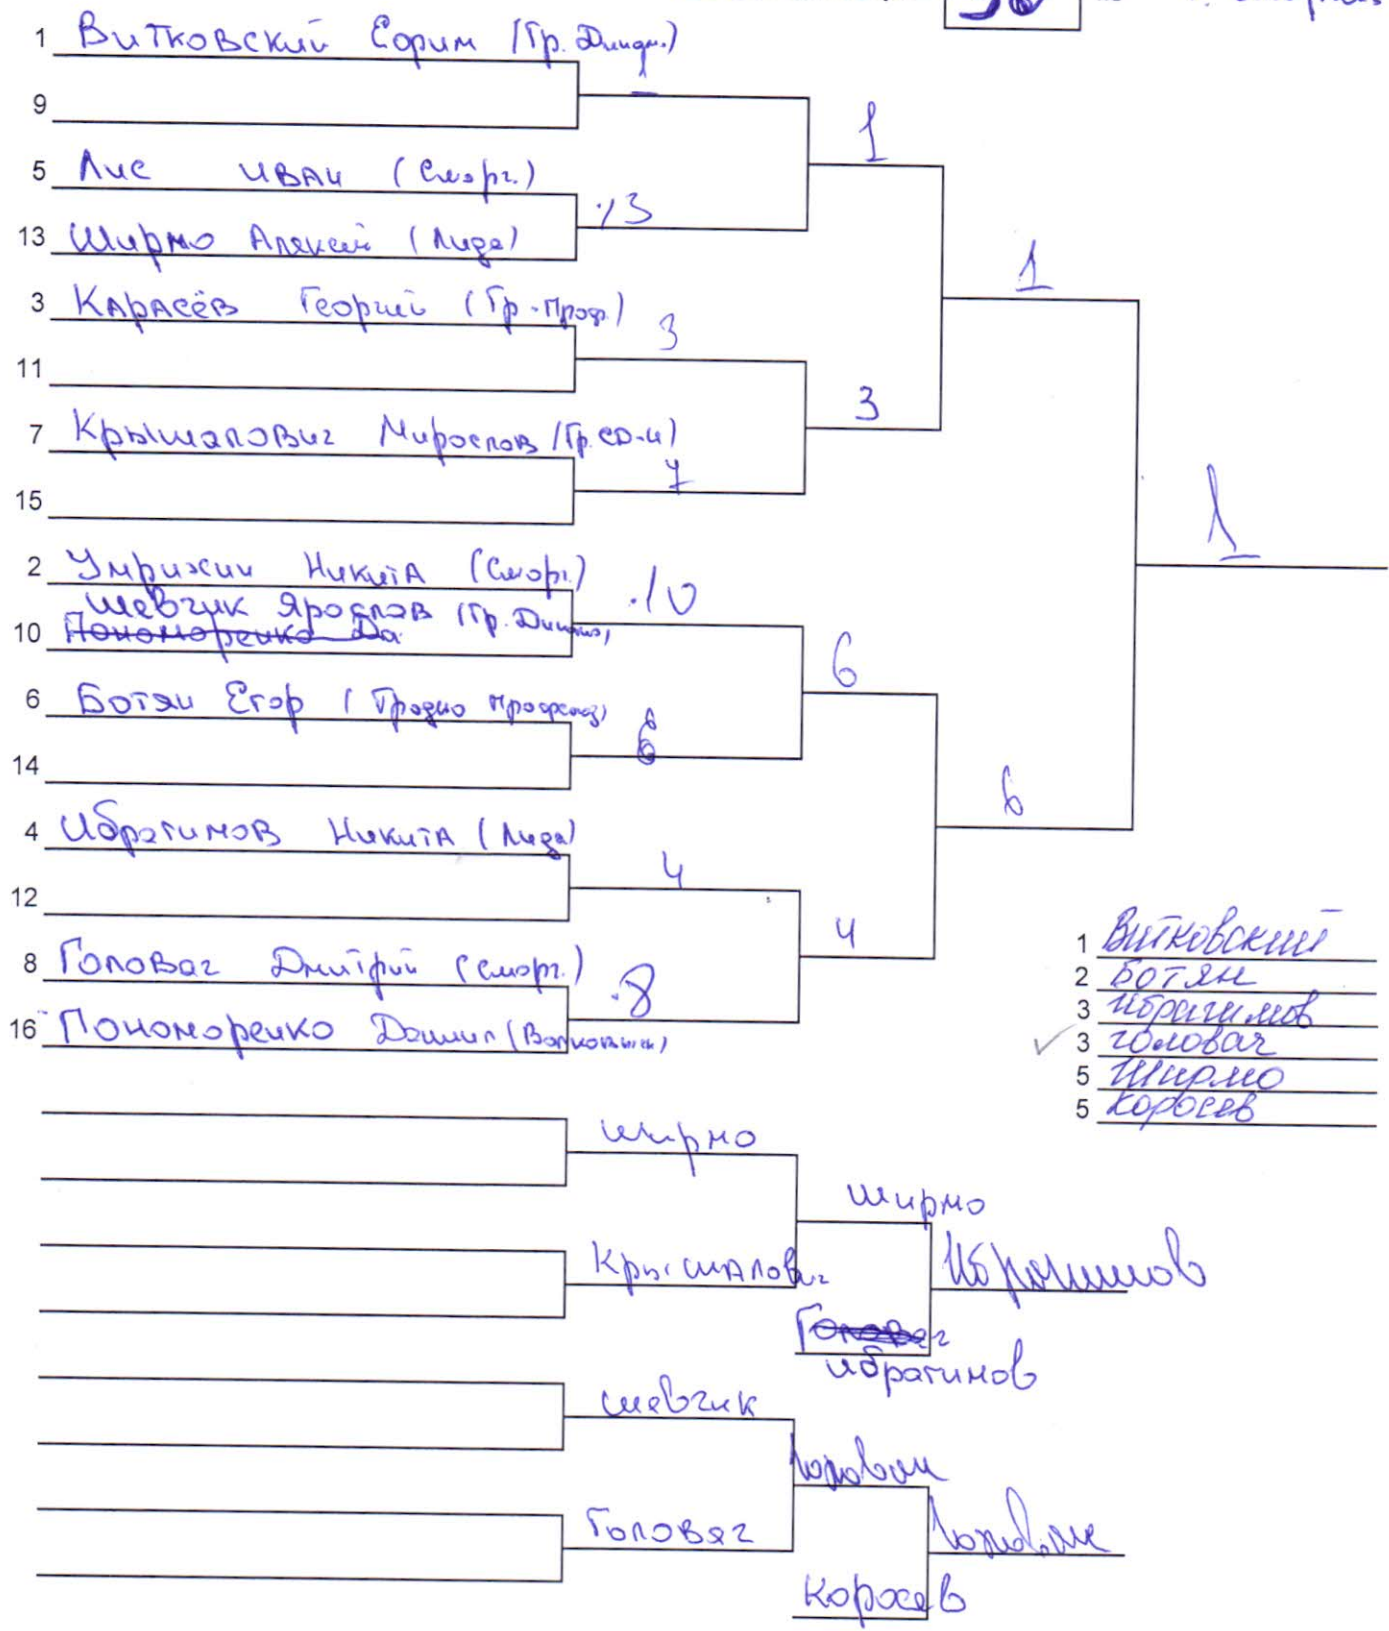 1 Витковский Ефрим (Гр. Динам.)
1
9
1
5 Лис Иван (Сморг.)
13
13 Ширмо Алексей (Лида)
1
3 Карасёв Георгий (Гр-Проф.)
3
11
3
7 Крышалович Мирослав (Гр. СД-Ч)
7
15
1
2 Умрихин Никита (Сморг.)
Шевчик Ярослав (Гр. Динамо)
10
10 Пономоренко Да
6
6 Ботян Егор (Гродно Профсоюз)
6
14
6
4 Ибрагимов Никита (Лида)
4
12
4
8 Головач Дмитрий (Сморг.)
8
16 Пономоренко Даниил (Волковыск)
1 Витковский
2 Ботян
3 Ибрагимов
3 Головач
5 Ширмо
5 Коросев
Ширмо
Ширмо
Крышалович
Ибрагимов
Головач
Ибрагимов
Шевчик
Головач
Головач
Головач
Коросев